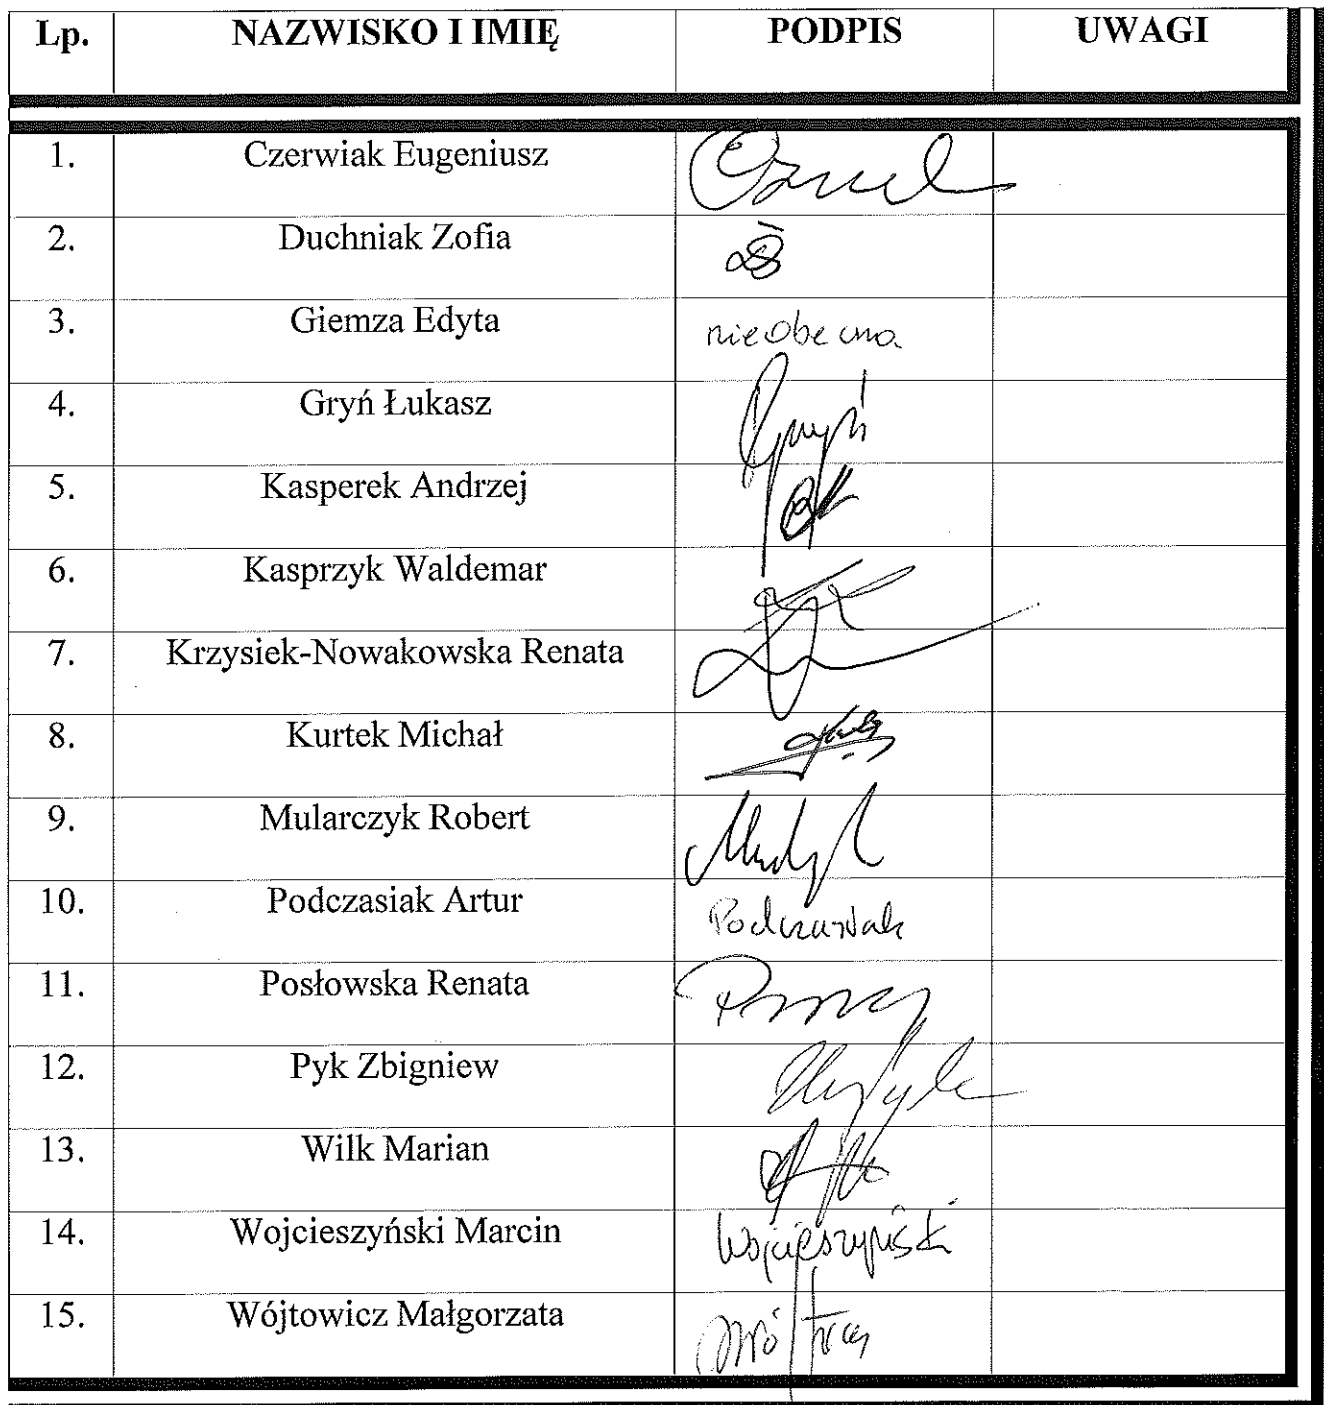 Lp. NAZWISKO I IMIĘ PODPIS UWAGI
1. Czerwiak Eugeniusz
2. Duchniak Zofia
3. Giemza Edyta nieobecna
4. Gryń Łukasz Gryń
5. Kasperek Andrzej
6. Kasprzyk Waldemar
7. Krzysiek-Nowakowska Renata
8. Kurtek Michał
9. Mularczyk Robert
10. Podczasiak Artur Podczasiak
11. Posłowska Renata
12. Pyk Zbigniew
13. Wilk Marian
14. Wojcieszyński Marcin Wojcieszyński
15. Wójtowicz Małgorzata